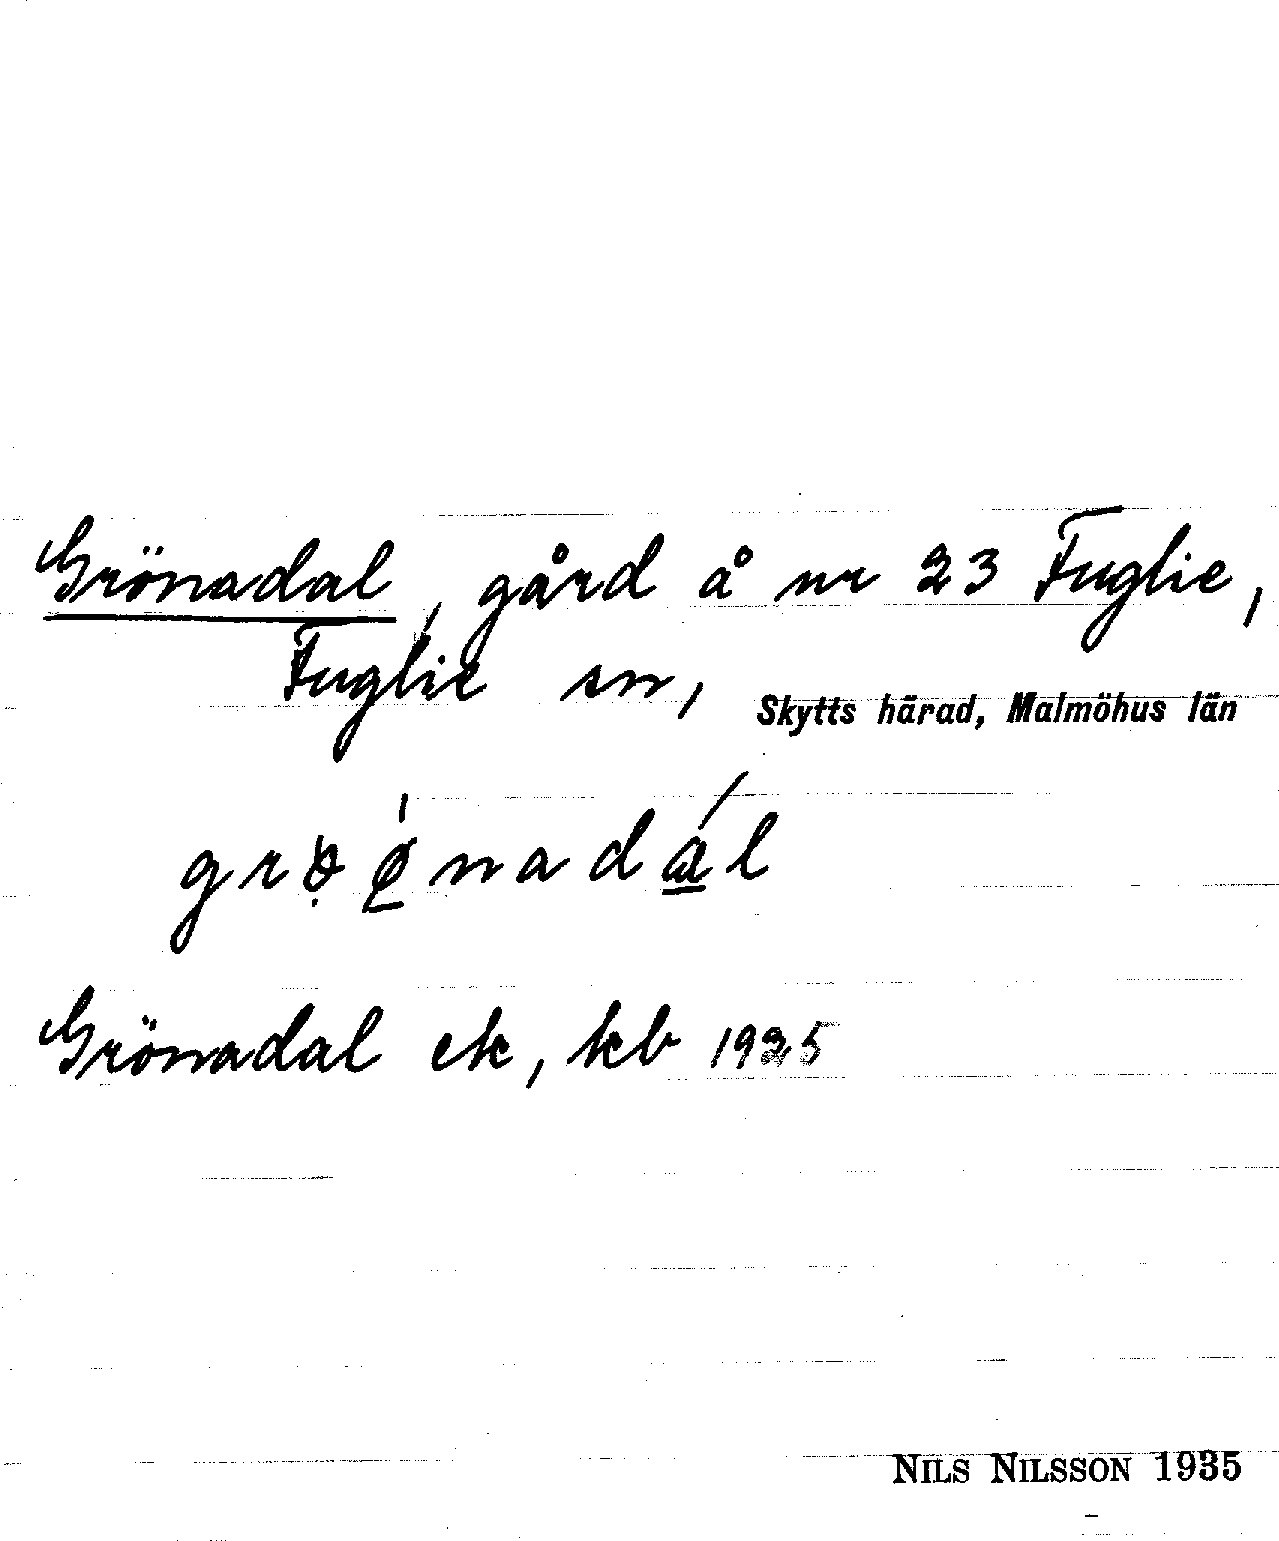 Grönadal, gård å nr 23 Fuglie,
Fuglie sn, Skytts härad, Malmöhus län
Grönadal ek, kb 1925
NILS NILSSON 1935